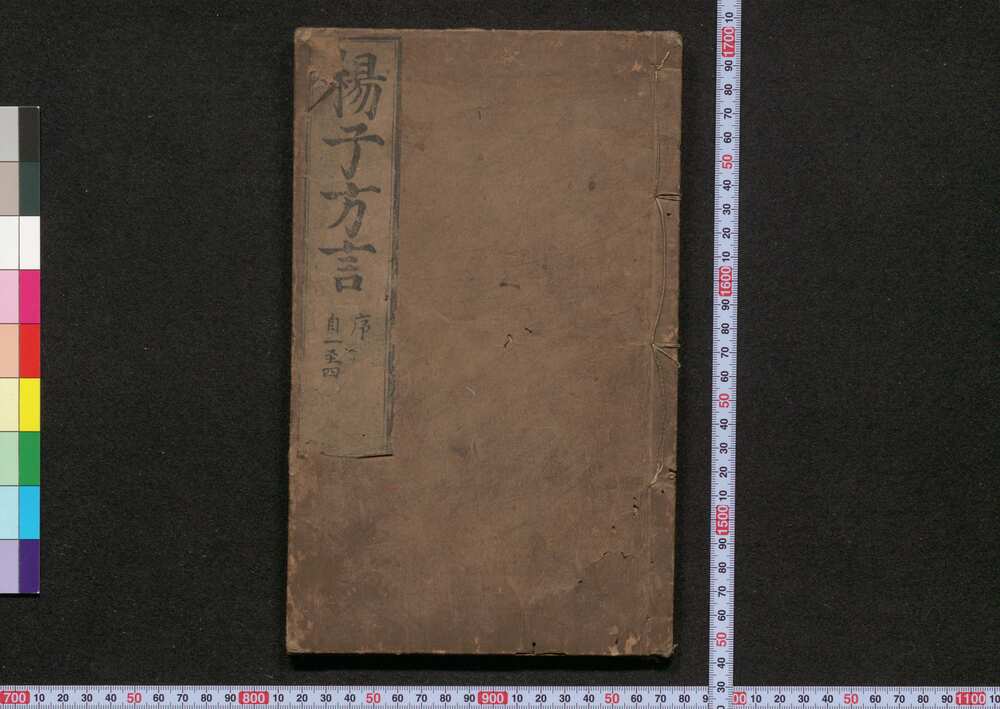 揚子方言
序
自一至四
10
1700
90
80
70
60
50
40
30
20
10
1600
90
80
70
60
50
40
30
20
10
1500
90
80
70
60
50
40
30
700 10 20 30 40 50 60 70 80 90 800 10 20 30 40 50 60 70 80 90 900 10 20 30 40 50 60 70 80 9 00 10 20 30 40 50 60 70 80 90 1100 10